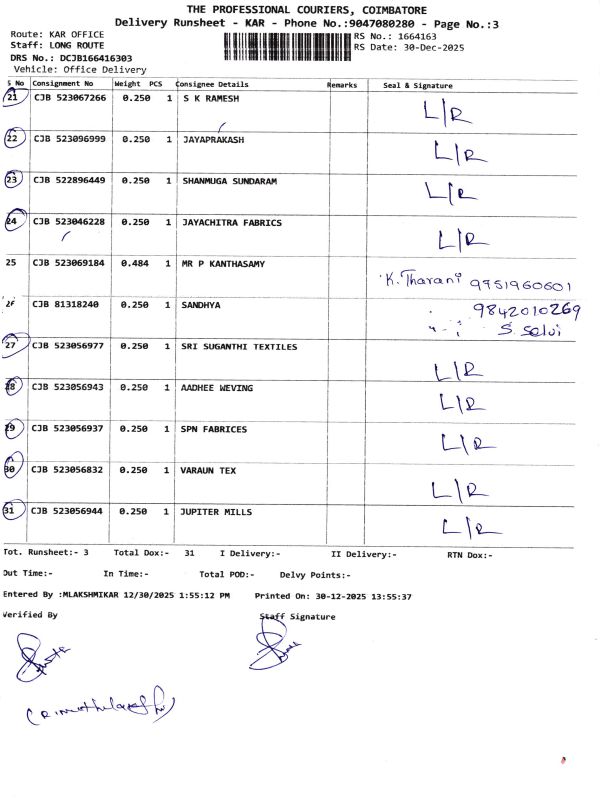 THE PROFESSIONAL COURIERS, COIMBATORE
Delivery Runsheet - KAR - Phone No.:9047080280 - Page No.:3
Route: KAR OFFICE RS No.: 1664163
Staff: LONG ROUTE RS Date: 30-Dec-2025
DRS No.: DCJB166416303
Vehicle: Office Delivery
S No Consignment No Weight PCS Consignee Details Remarks Seal & Signature
21 CJB 523067266 0.250 1 S K RAMESH L/R
22 CJB 523096999 0.250 1 JAYAPRAKASH L/R
23 CJB 522896449 0.250 1 SHANMUGA SUNDARAM L/R
24 CJB 523046228 0.250 1 JAYACHITRA FABRICS L/R
25 CJB 523069184 0.484 1 MR P KANTHASAMY K. Tharani 9751960601
26 CJB 81318240 0.250 1 SANDHYA 9842010269
S. Selvi
27 CJB 523056977 0.250 1 SRI SUGANTHI TEXTILES L/R
28 CJB 523056943 0.250 1 AADHEE WEVING L/R
29 CJB 523056937 0.250 1 SPN FABRICES L/R
30 CJB 523056832 0.250 1 VARAUN TEX L/R
31 CJB 523056944 0.250 1 JUPITER MILLS L/R
Tot. Runsheet:- 3 Total Dox:- 31 I Delivery:- II Delivery:- RTN Dox:-
Out Time:- In Time:- Total POD:- Delvy Points:-
Entered By :MLAKSHMIKAR 12/30/2025 1:55:12 PM Printed On: 30-12-2025 13:55:37
Verified By Staff Signature